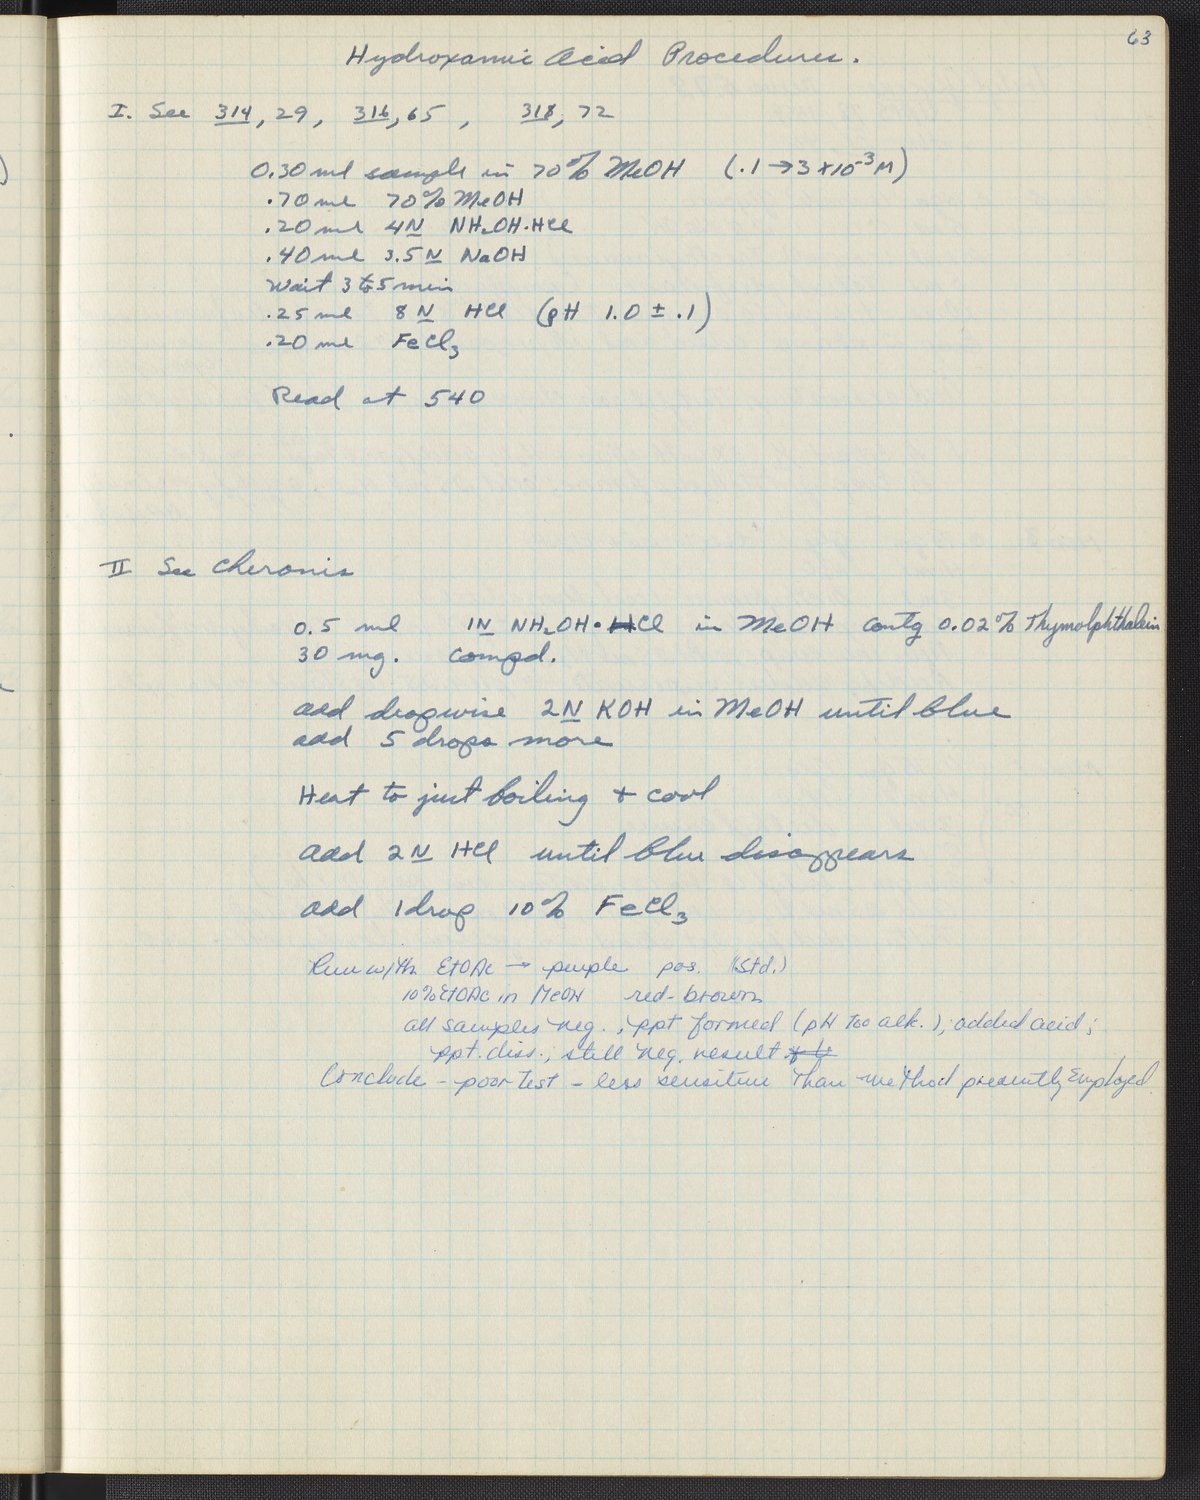 63
Hydroxamic Acid Procedures.
I. See 314, 29, 316, 65, 318, 72
0.30 ml sample in 70% MeOH (.1 → 3 x 10⁻³ M)
.70 ml 70% MeOH
.20 ml 4N NH₂OH·HCl
.40 ml 3.5 N NaOH
Wait 3 to 5 min
.25 ml 8 N HCl (pH 1.0 ± .1)
.20 ml FeCl₃
Read at 540
II See Cheronis
0.5 ml 1N NH₂OH·HCl in MeOH contg 0.02% Thymolphthalein
30 mg. compd.
add dropwise 2N KOH in MeOH until blue
add 5 drops more
Heat to just boiling + cool
add 2N HCl until blue disappears
add 1 drop 10% FeCl₃
Run with EtOAc → purple pos. (Std.)
10% EtOAc in MeOH red-brown
all samples neg.; ppt formed (pH too alk.); added acid;
ppt. diss.; still neg. result
Conclude - poor test - less sensitive than method presently employed.